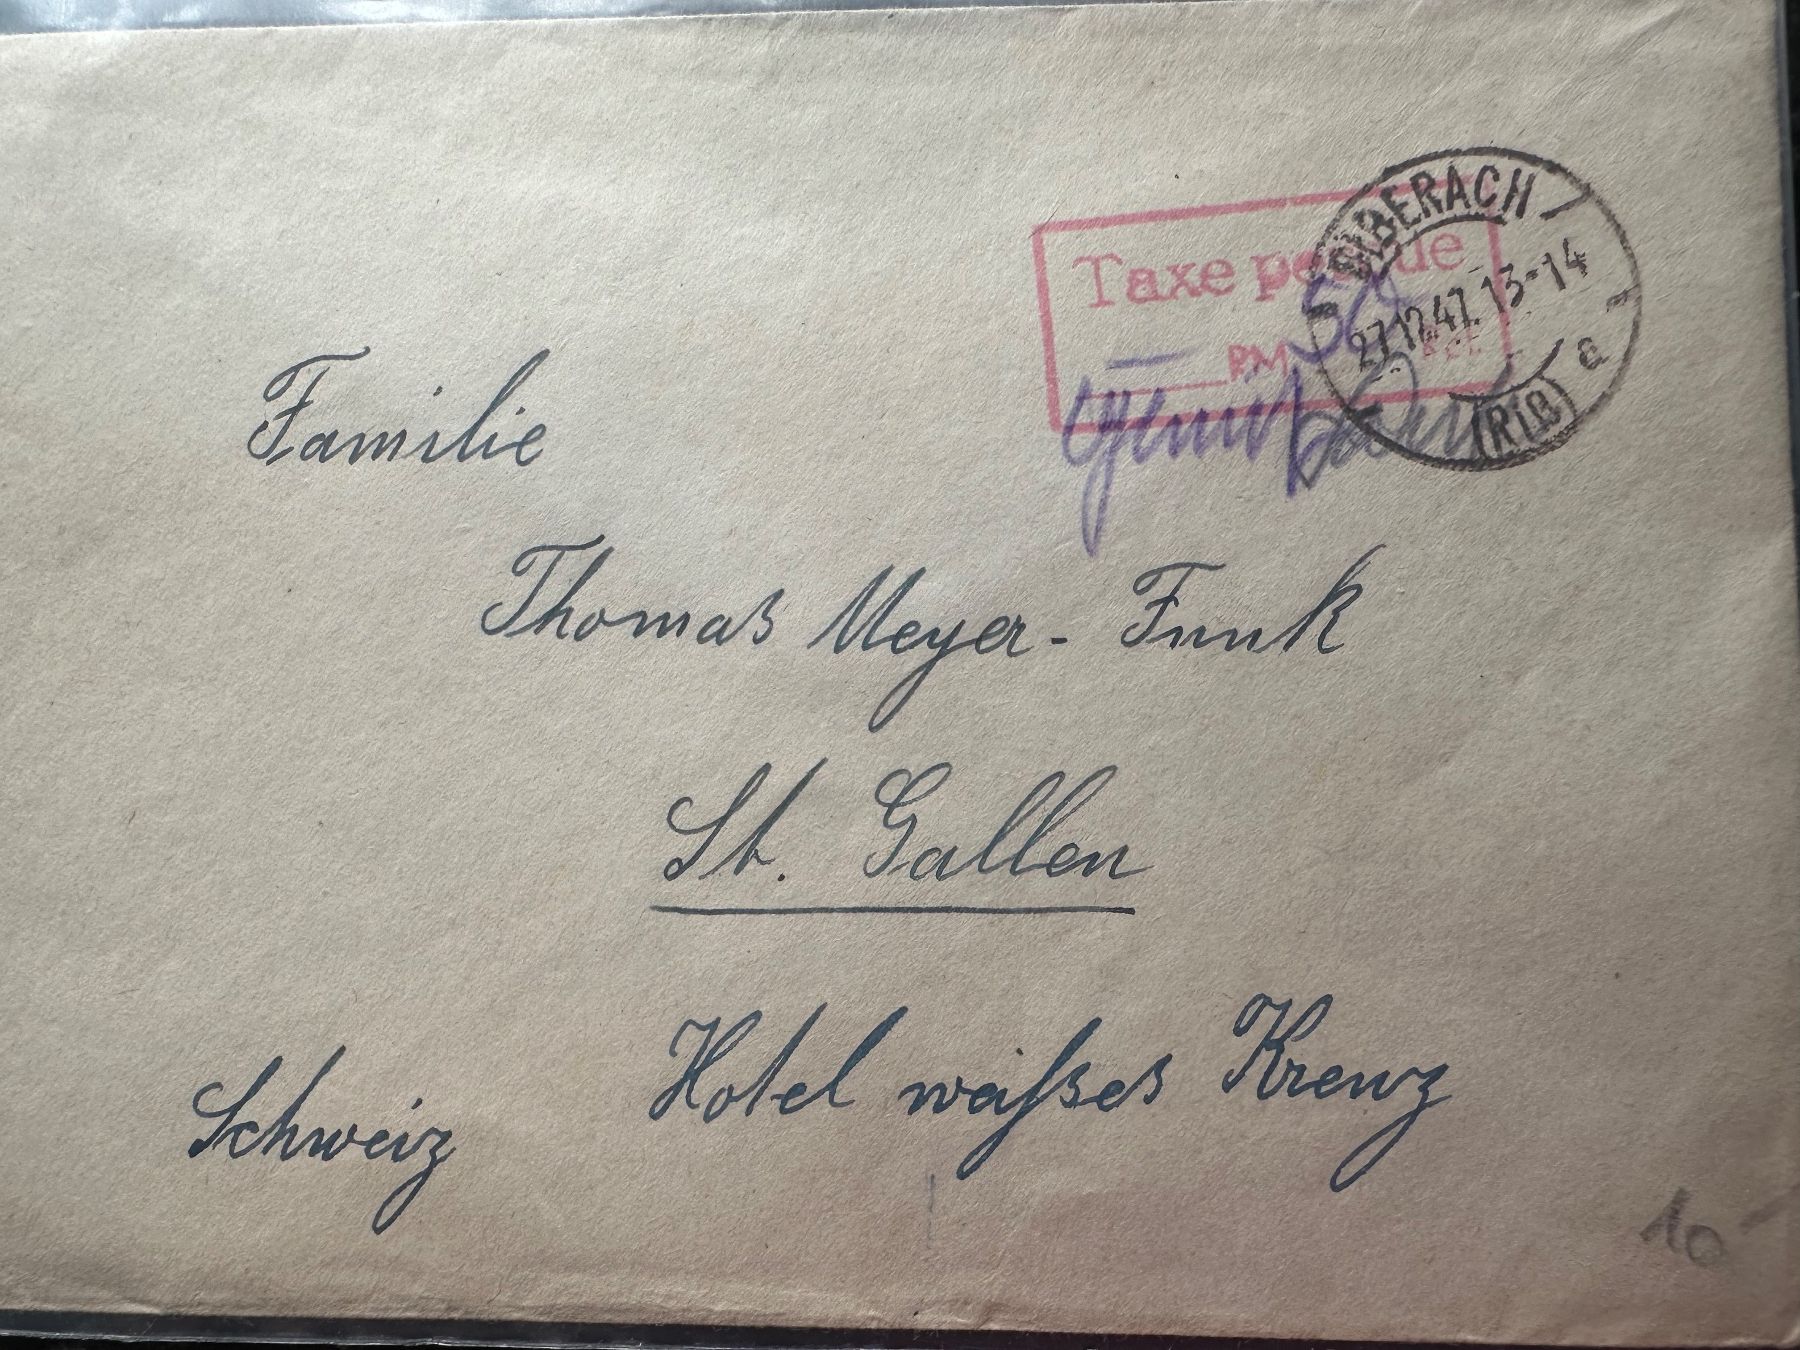 BIBERACH /
27.12.47. 13-14
a
(RIß)
Taxe perçue
RM 50
Familie
Thomas Meyer-Funk
St. Gallen
Hotel weißes Kreuz
Schweiz
10